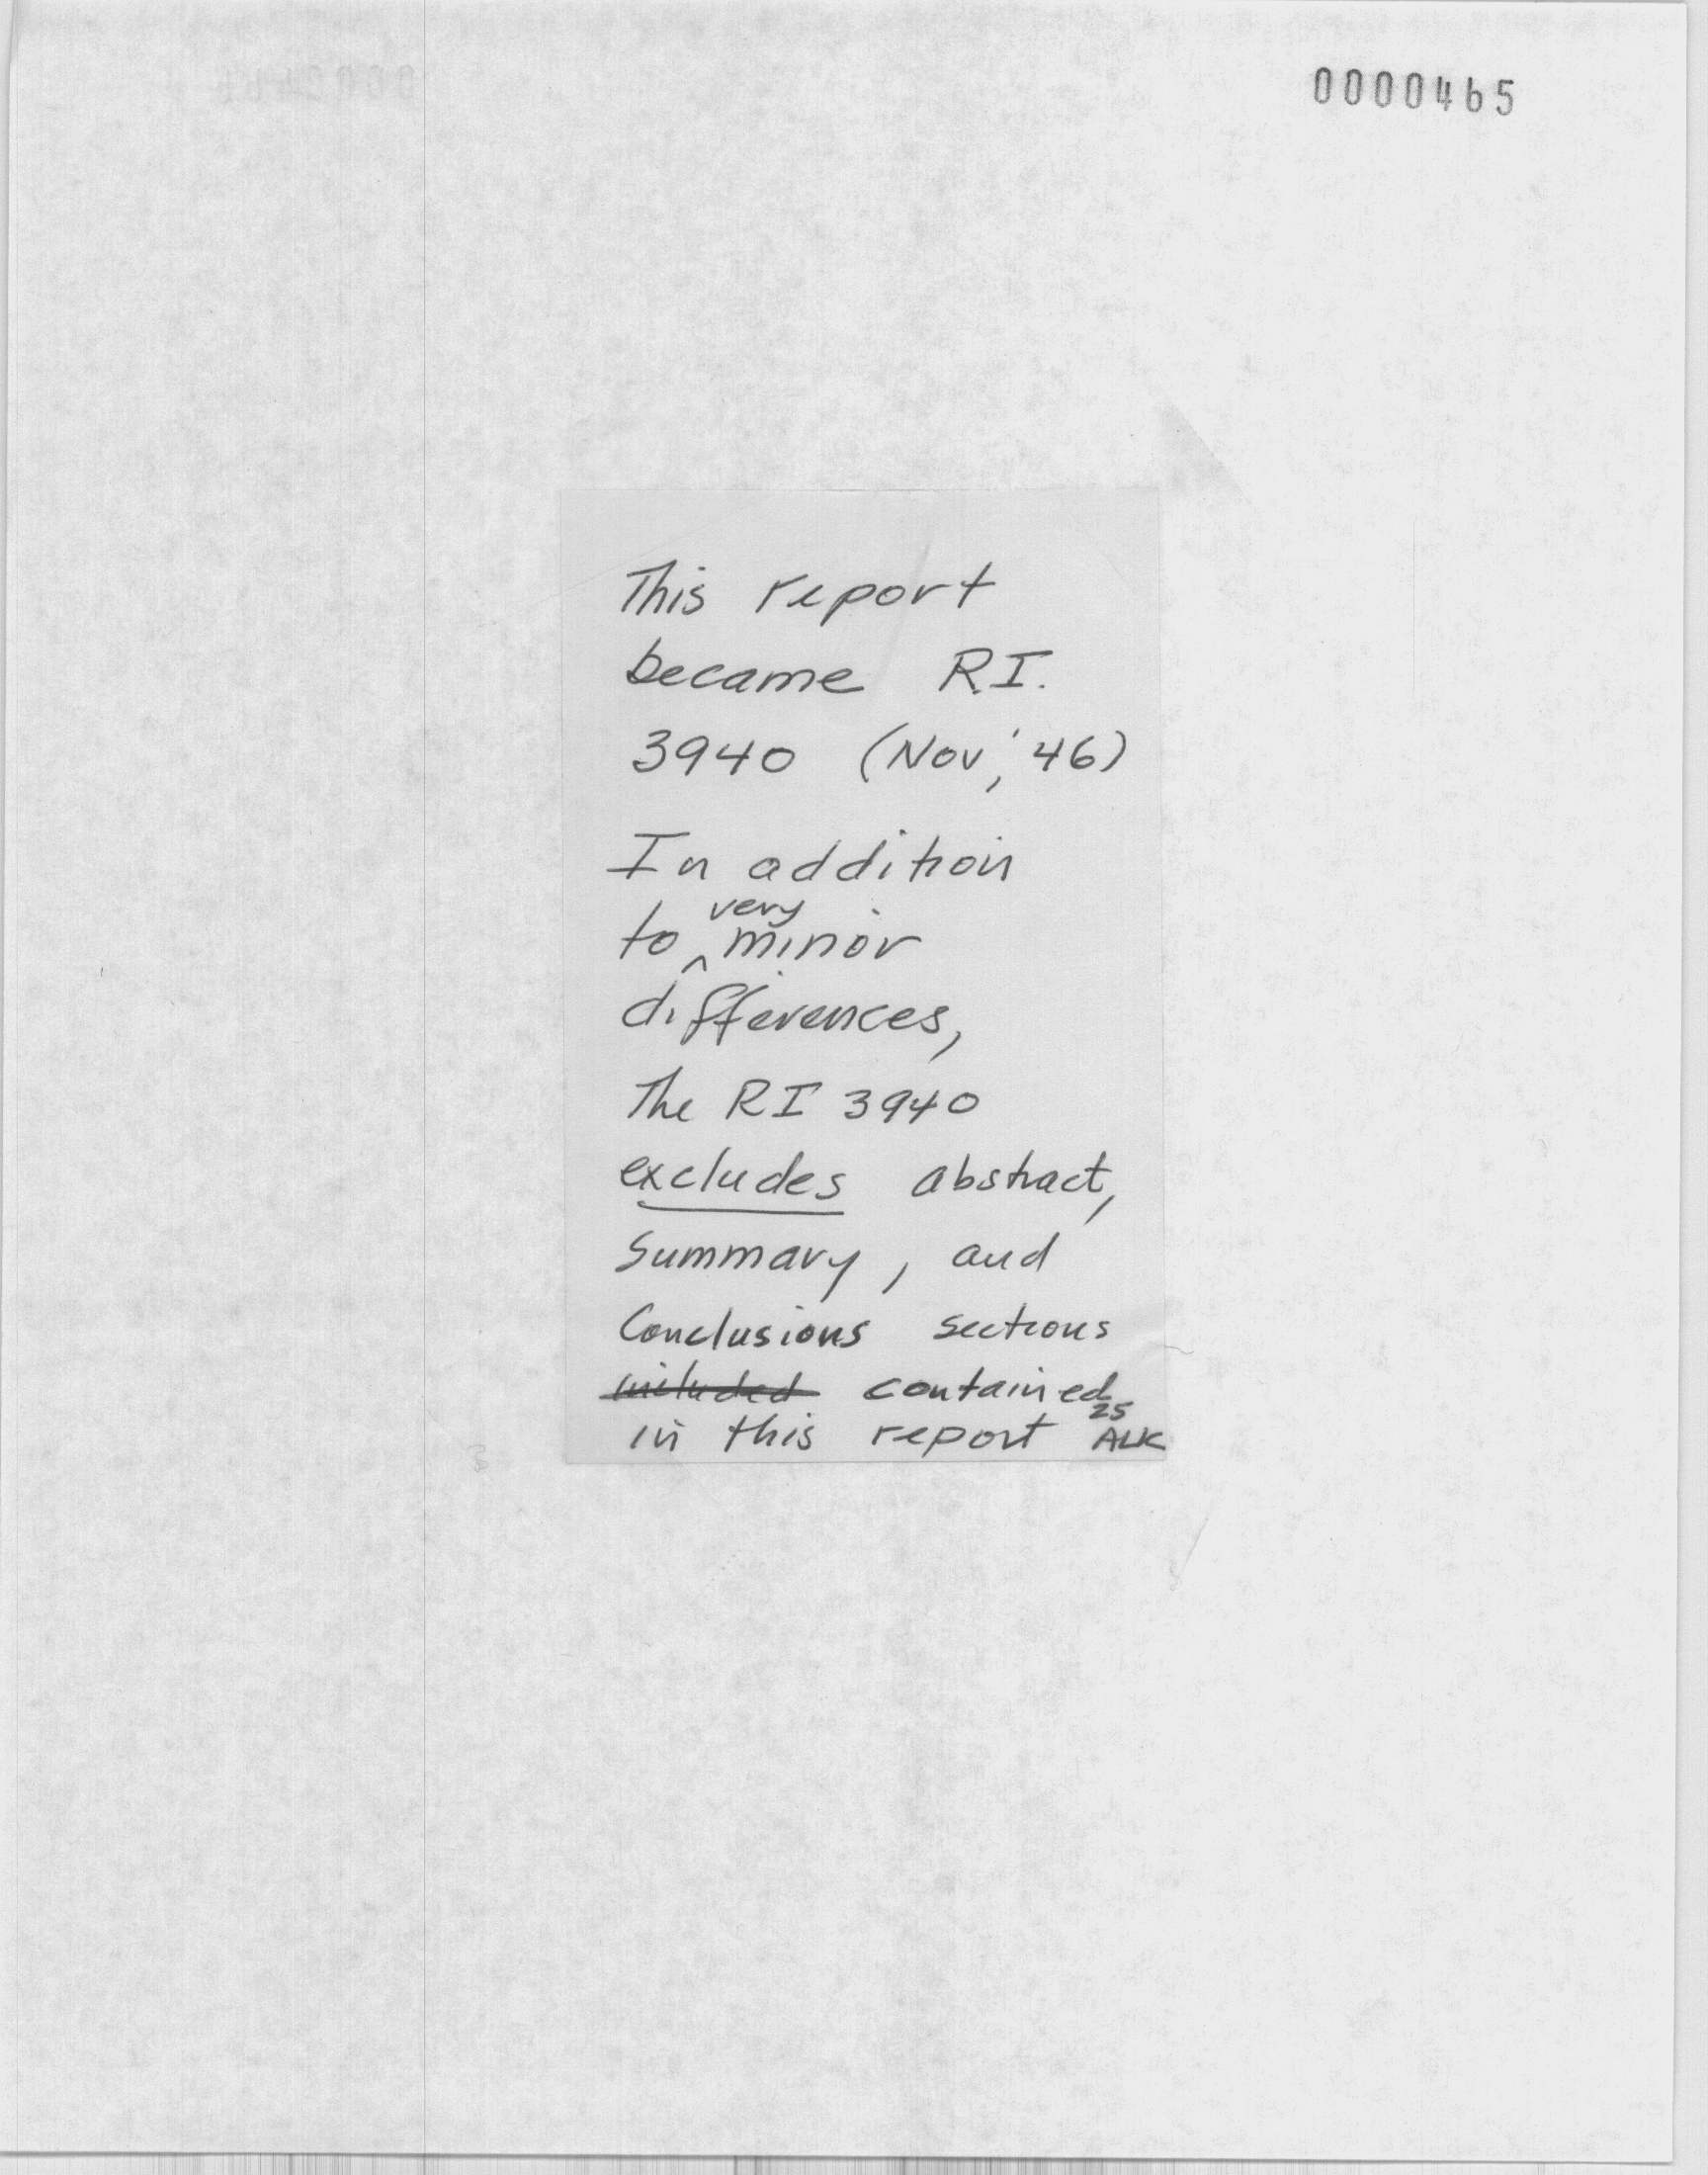 0000465
This report
became R.I.
3940 (Nov, '46)
In addition
to very minor
differences,
The RI 3940
excludes abstract,
Summary, and
Conclusions sections
included contained
in this report